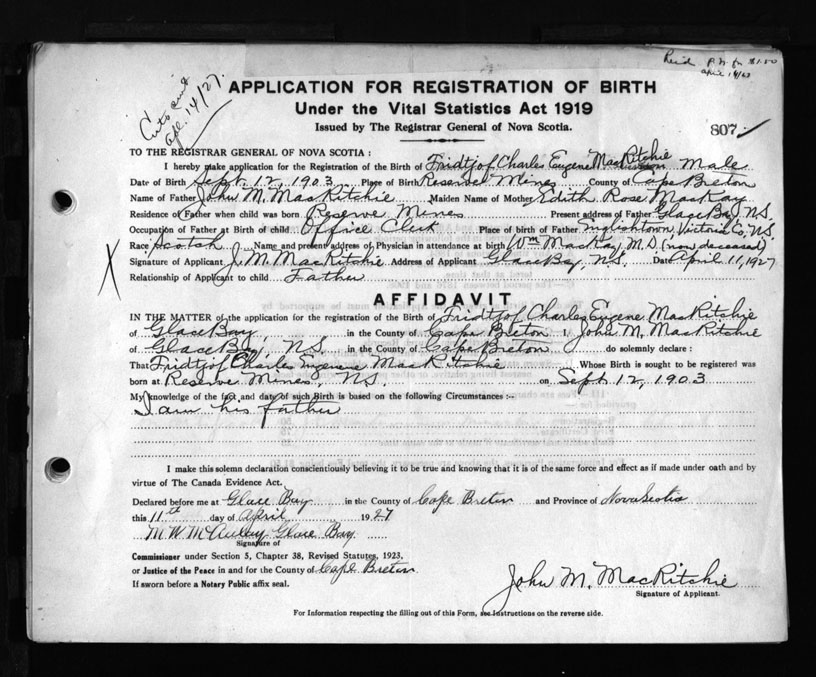 Recd P.N. for $1.00
April 14/27
Certs sent
Apl. 14/27.
APPLICATION FOR REGISTRATION OF BIRTH
Under the Vital Statistics Act 1919
Issued by The Registrar General of Nova Scotia.
807
TO THE REGISTRAR GENERAL OF NOVA SCOTIA :
I hereby make application for the Registration of the Birth of Fridtjof Charles Eugene MacRitchie Male
Date of Birth Sept. 12, 1903 Place of Birth Reserve Mines County of Cape Breton
Name of Father John M. MacRitchie Maiden Name of Mother Edith Rose MacKay
Residence of Father when child was born Reserve Mines Present address of Father Glace Bay N.S.
Occupation of Father at Birth of child Office Clerk Place of birth of Father Englishtown, Victoria Co, N.S.
Race Scotch Name and present address of Physician in attendence at birth Wm MacKay, M.D. (now deceased)
Signature of Applicant J. M. MacRitchie Address of Applicant Glace Bay, N.S. Date April 11, 1927
X Relationship of Applicant to child Father
AFFIDAVIT
IN THE MATTER of the application for the registration of the Birth of Fridtjof Charles Eugene MacRitchie
of Glace Bay in the County of Cape Breton I, John M. MacRitchie
of Glace Bay, N.S. in the County of Cape Breton do solemnly declare :
That Fridtjof Charles Eugene MacRitchie Whose Birth is sought to be registered was
born at Reserve Mines, N.S. on Sept 12, 1903
My knowledge of the fact and date of such Birth is based on the following Circumstances :-
I am his father
I make this solemn declaration conscientiously believing it to be true and knowing that it is of the same force and effect as if made under oath and by
virtue of The Canada Evidence Act.
Declared before me at Glace Bay in the County of Cape Breton and Province of Nova Scotia
this 11th day of April 1927
M. W. McAulay Glace Bay
Signature of
Commissioner under Section 5, Chapter 38, Revised Statutes, 1923,
or Justice of the Peace in and for the County of Cape Breton
If sworn before a Notary Public affix seal.
John M. MacRitchie
Signature of Applicant.
For Information respecting the filling out of this Form, see Instructions on the reverse side.